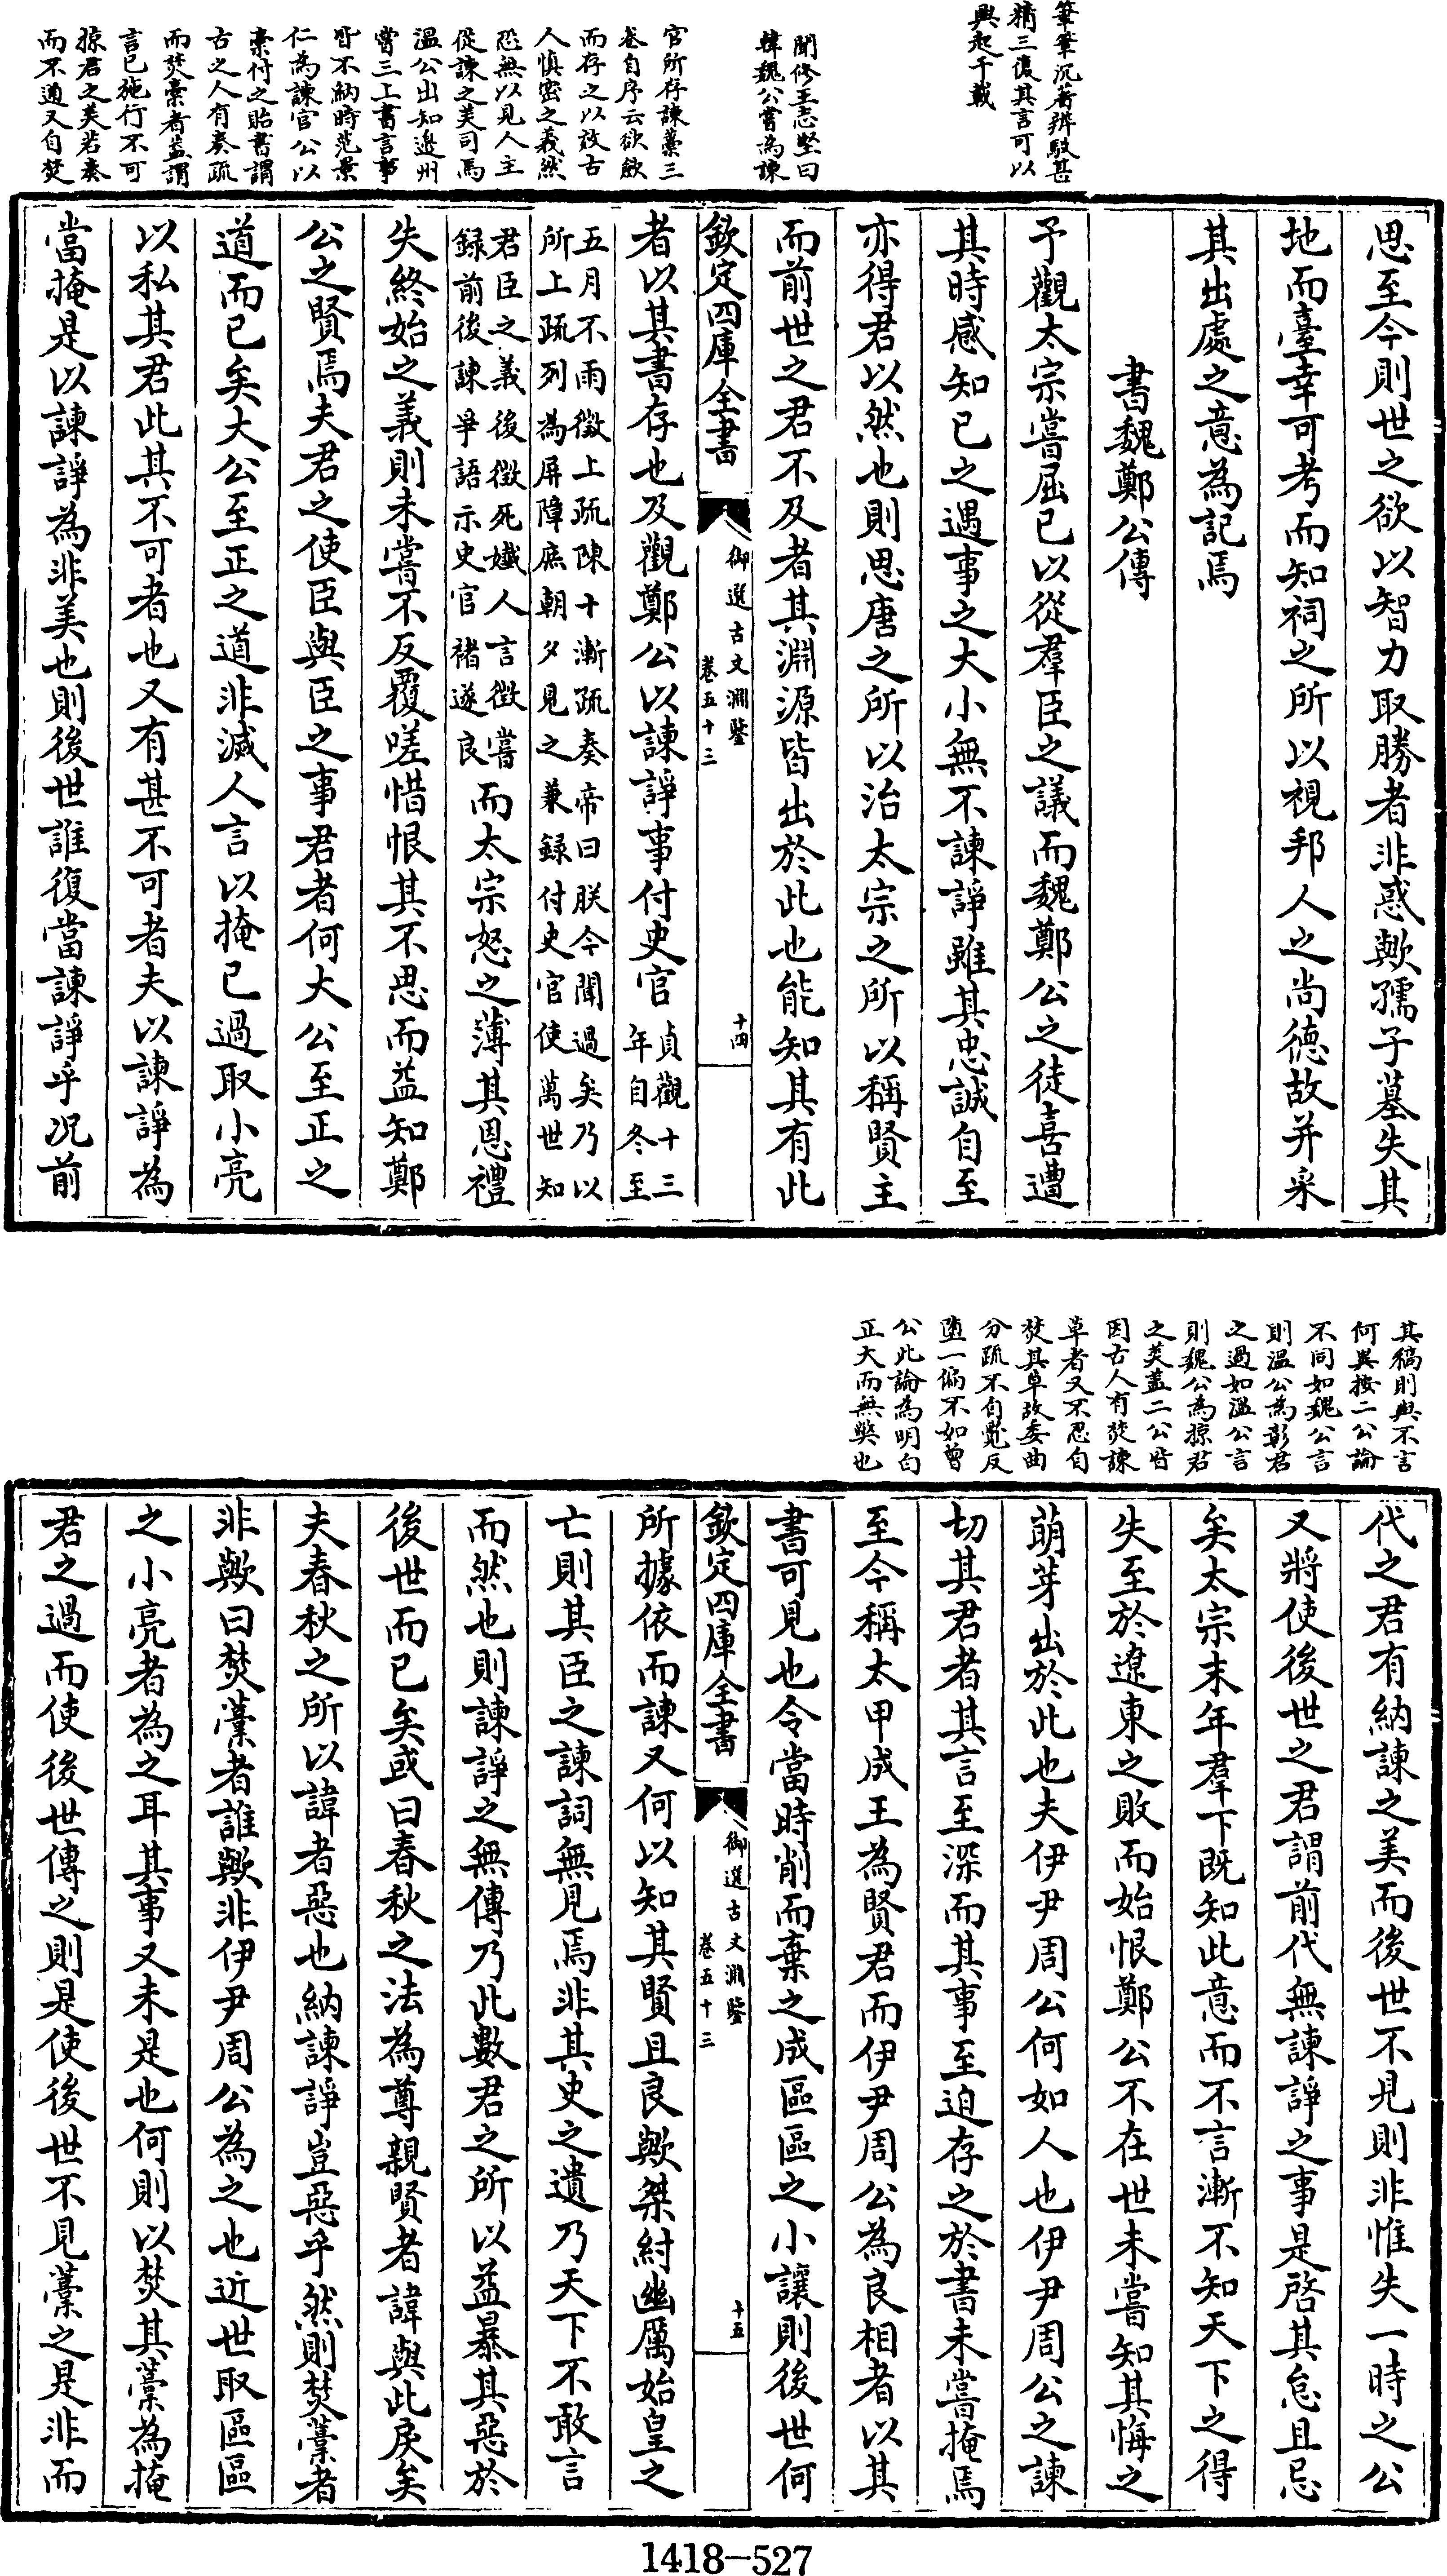 筆筆沉著辨駁甚
精三復其言可以
興起千載
聞修王志堅曰
韓魏公嘗為諫
官所存諫藁三
卷自序云欲斂
而存之以效古
人慎密之義然
恐無以見人主
從諫之美司馬
溫公出知邊州
嘗三上書言事
皆不納時范景
仁為諫官公以
藁付之貽書謂
古之人有奏疏
而焚藁者蓋謂
言已施行不可
掠君之美若奏
而不通又自焚
思至今則世之欲以智力取勝者非惑歟孺子墓失其
地而臺幸可考而知祠之所以視邦人之尚德故并采
其出處之意為記焉
書魏鄭公傳
予觀太宗嘗屈已以從羣臣之議而魏鄭公之徒喜遭
其時感知已之遇事之大小無不諫諍雖其忠誠自至
亦得君以然也則思唐之所以治太宗之所以稱賢主
而前世之君不及者其淵源皆出於此也能知其有此
欽定四庫全書
御選古文淵鑒
卷五十三
十四
者以其書存也及觀鄭公以諫諍事付史官
貞觀十三
年自冬至
五月不雨徵上疏陳十漸疏奏帝曰朕今聞過矣乃以
所上疏列為屏障庶朝夕見之兼録付史官使萬世知
君臣之義後徵死孅人言徵嘗
録前後諫爭語示史官褚遂良
而太宗怒之薄其恩禮
失終始之義則未嘗不反覆嗟惜恨其不思而益知鄭
公之賢焉夫君之使臣與臣之事君者何大公至正之
道而已矣大公至正之道非滅人言以掩已過取小亮
以私其君此其不可者也又有甚不可者夫以諫諍為
當掩是以諫諍為非美也則後世誰復當諫諍乎況前
其稿則與不言
何異按二公論
不同如魏公言
則溫公為彰君
之過如溫公言
則魏公為掠君
之美蓋二公皆
因古人有焚諫
草者又不忍自
焚其草故委曲
分疏不自覺反
墮一偏不如曾
公此論為明白
正大而無弊也
代之君有納諫之美而後世不見則非惟失一時之公
又將使後世之君謂前代無諫諍之事是啓其怠且忌
矣太宗末年羣下既知此意而不言漸不知天下之得
失至於遼東之敗而始恨鄭公不在世未嘗知其悔之
萌芽出於此也夫伊尹周公何如人也伊尹周公之諫
切其君者其言至深而其事至迫存之於書未嘗掩焉
至今稱太甲成王為賢君而伊尹周公為良相者以其
書可見也令當時削而棄之成區區之小讓則後世何
欽定四庫全書
御選古文淵鑒
卷五十三
十五
所據依而諫又何以知其賢且良歟桀紂幽厲始皇之
亡則其臣之諫詞無見焉非其史之遺乃天下不敢言
而然也則諫諍之無傳乃此數君之所以益暴其惡於
後世而已矣或曰春秋之法為尊親賢者諱與此戾矣
夫春秋之所以諱者惡也納諫諍豈惡乎然則焚藁者
非歟曰焚藁者誰歟非伊尹周公為之也近世取區區
之小亮者為之耳其事又未是也何則以焚其藁為掩
君之過而使後世傳之則是使後世不見藁之是非而
1418-527